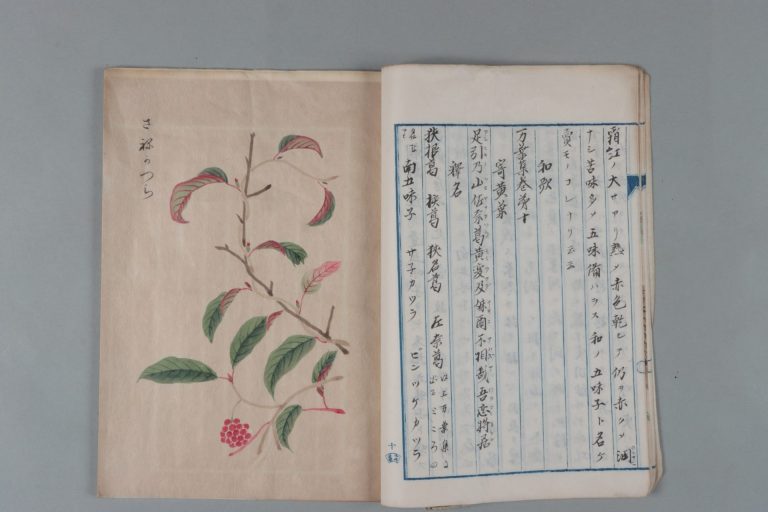 霜紅ノ大サアリ熟メ赤色乾ヒテ仍ヲ赤クメ潤
ナシ苦味多メ五味備ハラス和ノ五味子ト名ケ
賣モノコレナリ云云
和歌
万葉集巻第十
寄黄葉
足引乃山佐奈葛黄変及妹爾不相哉吾恋将居
釋名
狭根葛 狭葛 狭名葛 左奈葛 以上万葉集ニ
南五味子 サネカツラ ビンツケカツラ
十
さねかつら